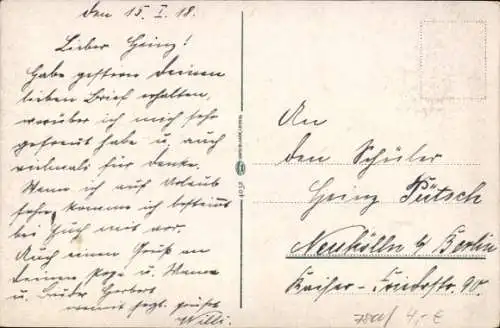 den 15. I. 18.
Lieber Heinz!
Habe gestern Deinen
lieben Brief erhalten,
worüber ich mich sehr
gefreut habe u. auch
vielmals für danke.
Wenn ich auf Urlaub
fahre, komme ich bestimmt
bei Euch mit vor.
Auch einen Gruß an
Deinen Papa u. Mama
u. Bruder Herbert
womit hzgl. grüßt
Willi.
An
den Schüler
Heinz Pütsch
Neukölln b/ Berlin
Kaiser-Friedrstr. 90.
4,- €